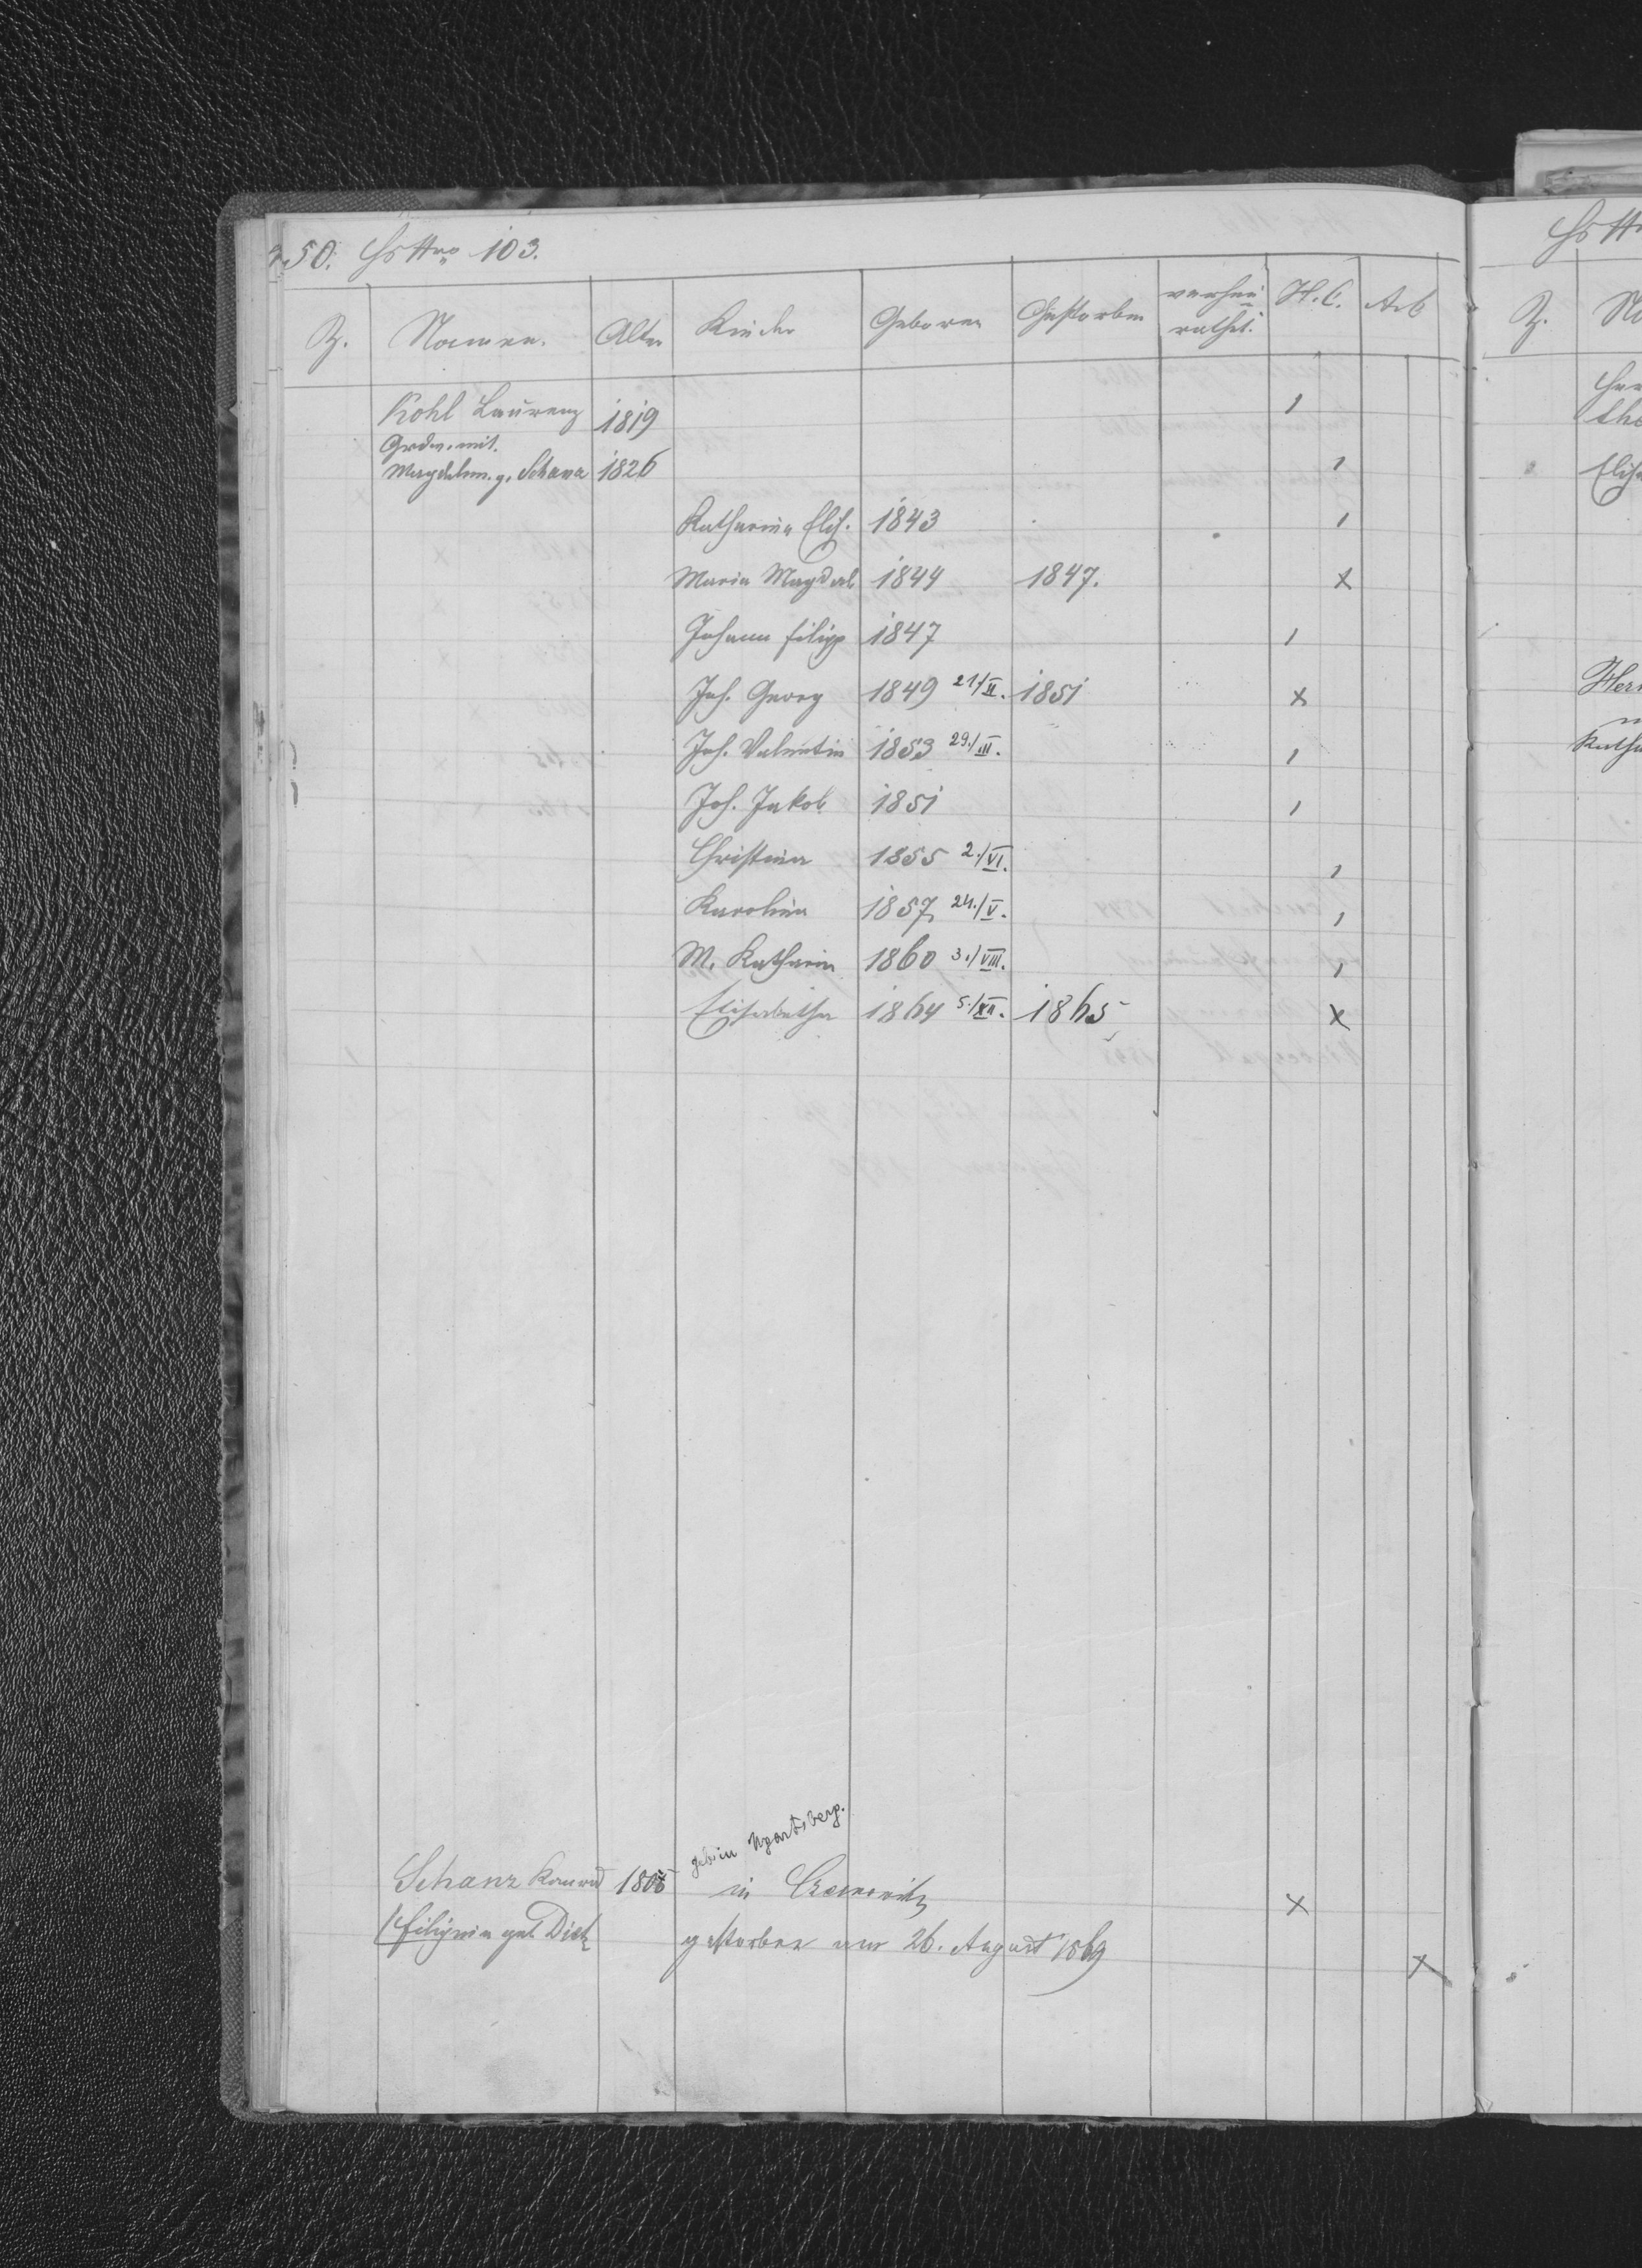 50. Hs Nro 103.
Z. Namen. Alter Kinder Geboren Gestorben verhei
rathet. H. C. A. C.
Kohl Laurenz 1819
Grdw. mit.
Magdalen. g. Schanz 1826
Katharina Elis. 1843
Maria Magdal 1844 1847. x
Johann Filipp 1847
Joh. Georg 1849 21./II. 1851 x
Joh. Valentin 1853 29./III.
Joh. Jakob 1851
Christina 1855 2./VI.
Karolina 1857 24./V.
M. Katharin 1860 3./VIII.
Elisabetha 1864 5./XII. 1865 x
geb. in
Schanz Konrad in x
Filippina geb. Dietz gestorben am 26. August 1869 x
Hs N
Z.
Elis
Her
Kath